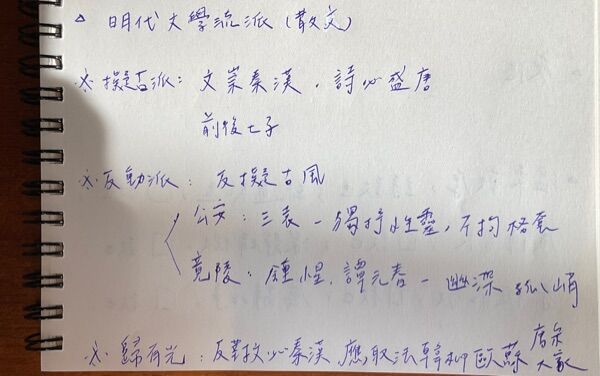 △ 明代文學流派(散文)
※擬古派：文崇秦漢，詩必盛唐
前後七子
※反動派：反擬古風
公安：三袁－獨抒性靈，不拘格套
竟陵：鍾惺，譚元春－幽深孤峭
※歸有光：反對文必秦漢，應取法韓柳歐蘇 唐宋
大家